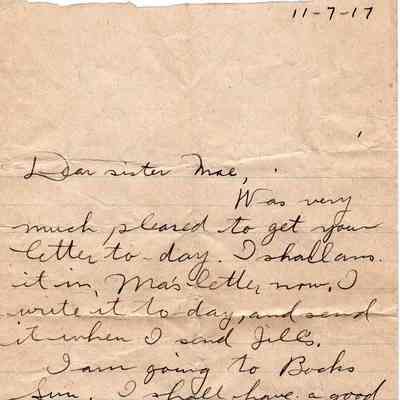 11-7-17
Dear sister Mae,
Was very
much pleased to get your
letter to-day. I shall ans.
it in Ma's letter now. I
write it to day, and send
it when I send Jill's.
I am going to Bocks
Sun. I shall have a good